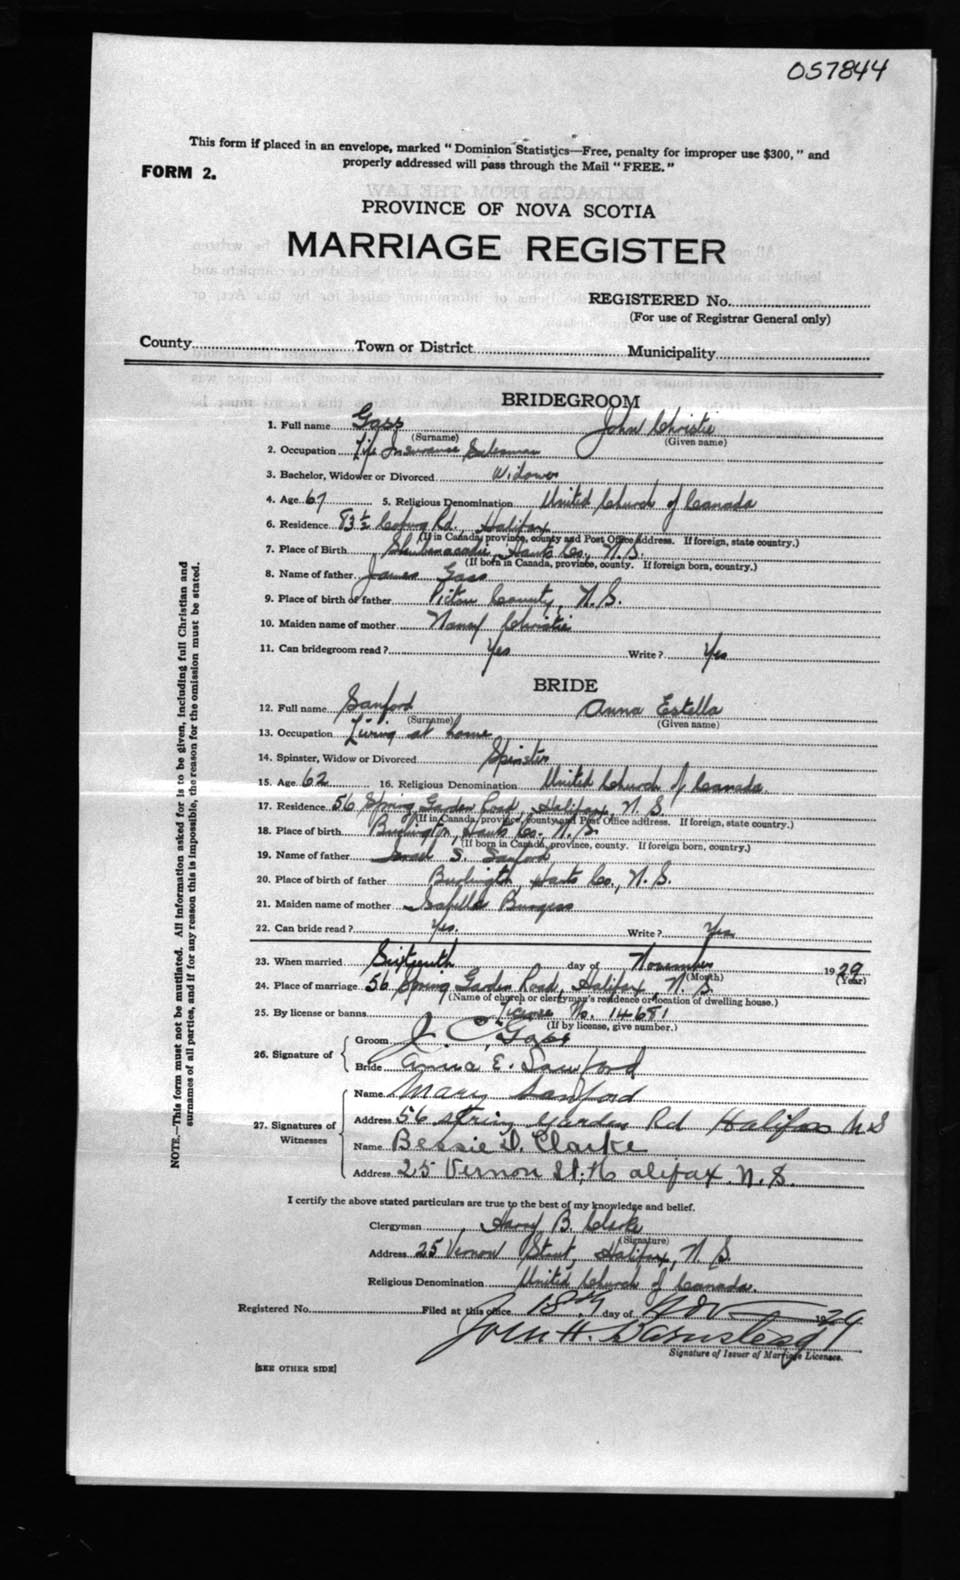 057844
This form if placed in an envelope, marked "Dominion Statistics—Free, penalty for improper use $300," and
properly addressed will pass through the Mail "FREE."
FORM 2.
PROVINCE OF NOVA SCOTIA
MARRIAGE REGISTER
REGISTERED No.
(For use of Registrar General only)
County Town or District Municipality
BRIDEGROOM
1. Full name Gass John Christie
(Surname) (Given name)
2. Occupation Life Insurance Salesman
3. Bachelor, Widower or Divorced Widower
4. Age 67 5. Religious Denomination United Church of Canada
6. Residence 83½ Coburg Rd. Halifax
(If in Canada, province, county and Post Office Address. If foreign, state country.)
7. Place of Birth Shubenacadie, Hants Co., N.S.
(If born in Canada, province, county. If foreign born, country.)
8. Name of father James Gass
9. Place of birth of father Pictou County, N.S.
10. Maiden name of mother Nancy Christie
11. Can bridegroom read? Yes Write? Yes
BRIDE
12. Full name Sanford Anna Estella
(Surname) (Given name)
13. Occupation Living at home
14. Spinster, Widow or Divorced Spinster
15. Age 62 16. Religious Denomination United Church of Canada
17. Residence 56 Spring Garden Road, Halifax, N.S.
(If in Canada, province, county and Post Office address. If foreign, state country.)
18. Place of birth Burlington, Hants Co. N.S.
(If born in Canada, province, county. If foreign born, country.)
19. Name of father S. Sanford
20. Place of birth of father Burlington Hants Co., N.S.
21. Maiden name of mother Isabella Burgess
22. Can bride read? Yes. Write? Yes
23. When married Sixteenth day of November 1929
(Month) (Year)
24. Place of marriage 56 Spring Garden Road, Halifax, N.S.
(Name of church or clergyman's residence or location of dwelling house.)
25. By license or banns License No. 14681
(If by license, give number.)
26. Signature of Groom J. C. Gass
Bride Anna E. Sanford
27. Signatures of Witnesses Name Mary Sanford
Address 56 Spring Garden Rd Halifax N S
Name Bessie D. Clarke
Address 25 Vernon St, Halifax. N.S.
I certify the above stated particulars are true to the best of my knowledge and belief.
Clergyman Harry B. Clarke
(Signature)
Address 25 Vernon Street, Halifax, N.S.
Religious Denomination United Church of Canada.
Registered No. Filed at this office 18th day of Nov 1929
John H. Barnstead
Signature of Issuer of Marriage Licenses.
[SEE OTHER SIDE]
NOTE.—This form must not be mutilated. All information asked for is to be given, including full Christian and
surnames of all parties, and if for any reason this is impossible, the reason for the omission must be stated.